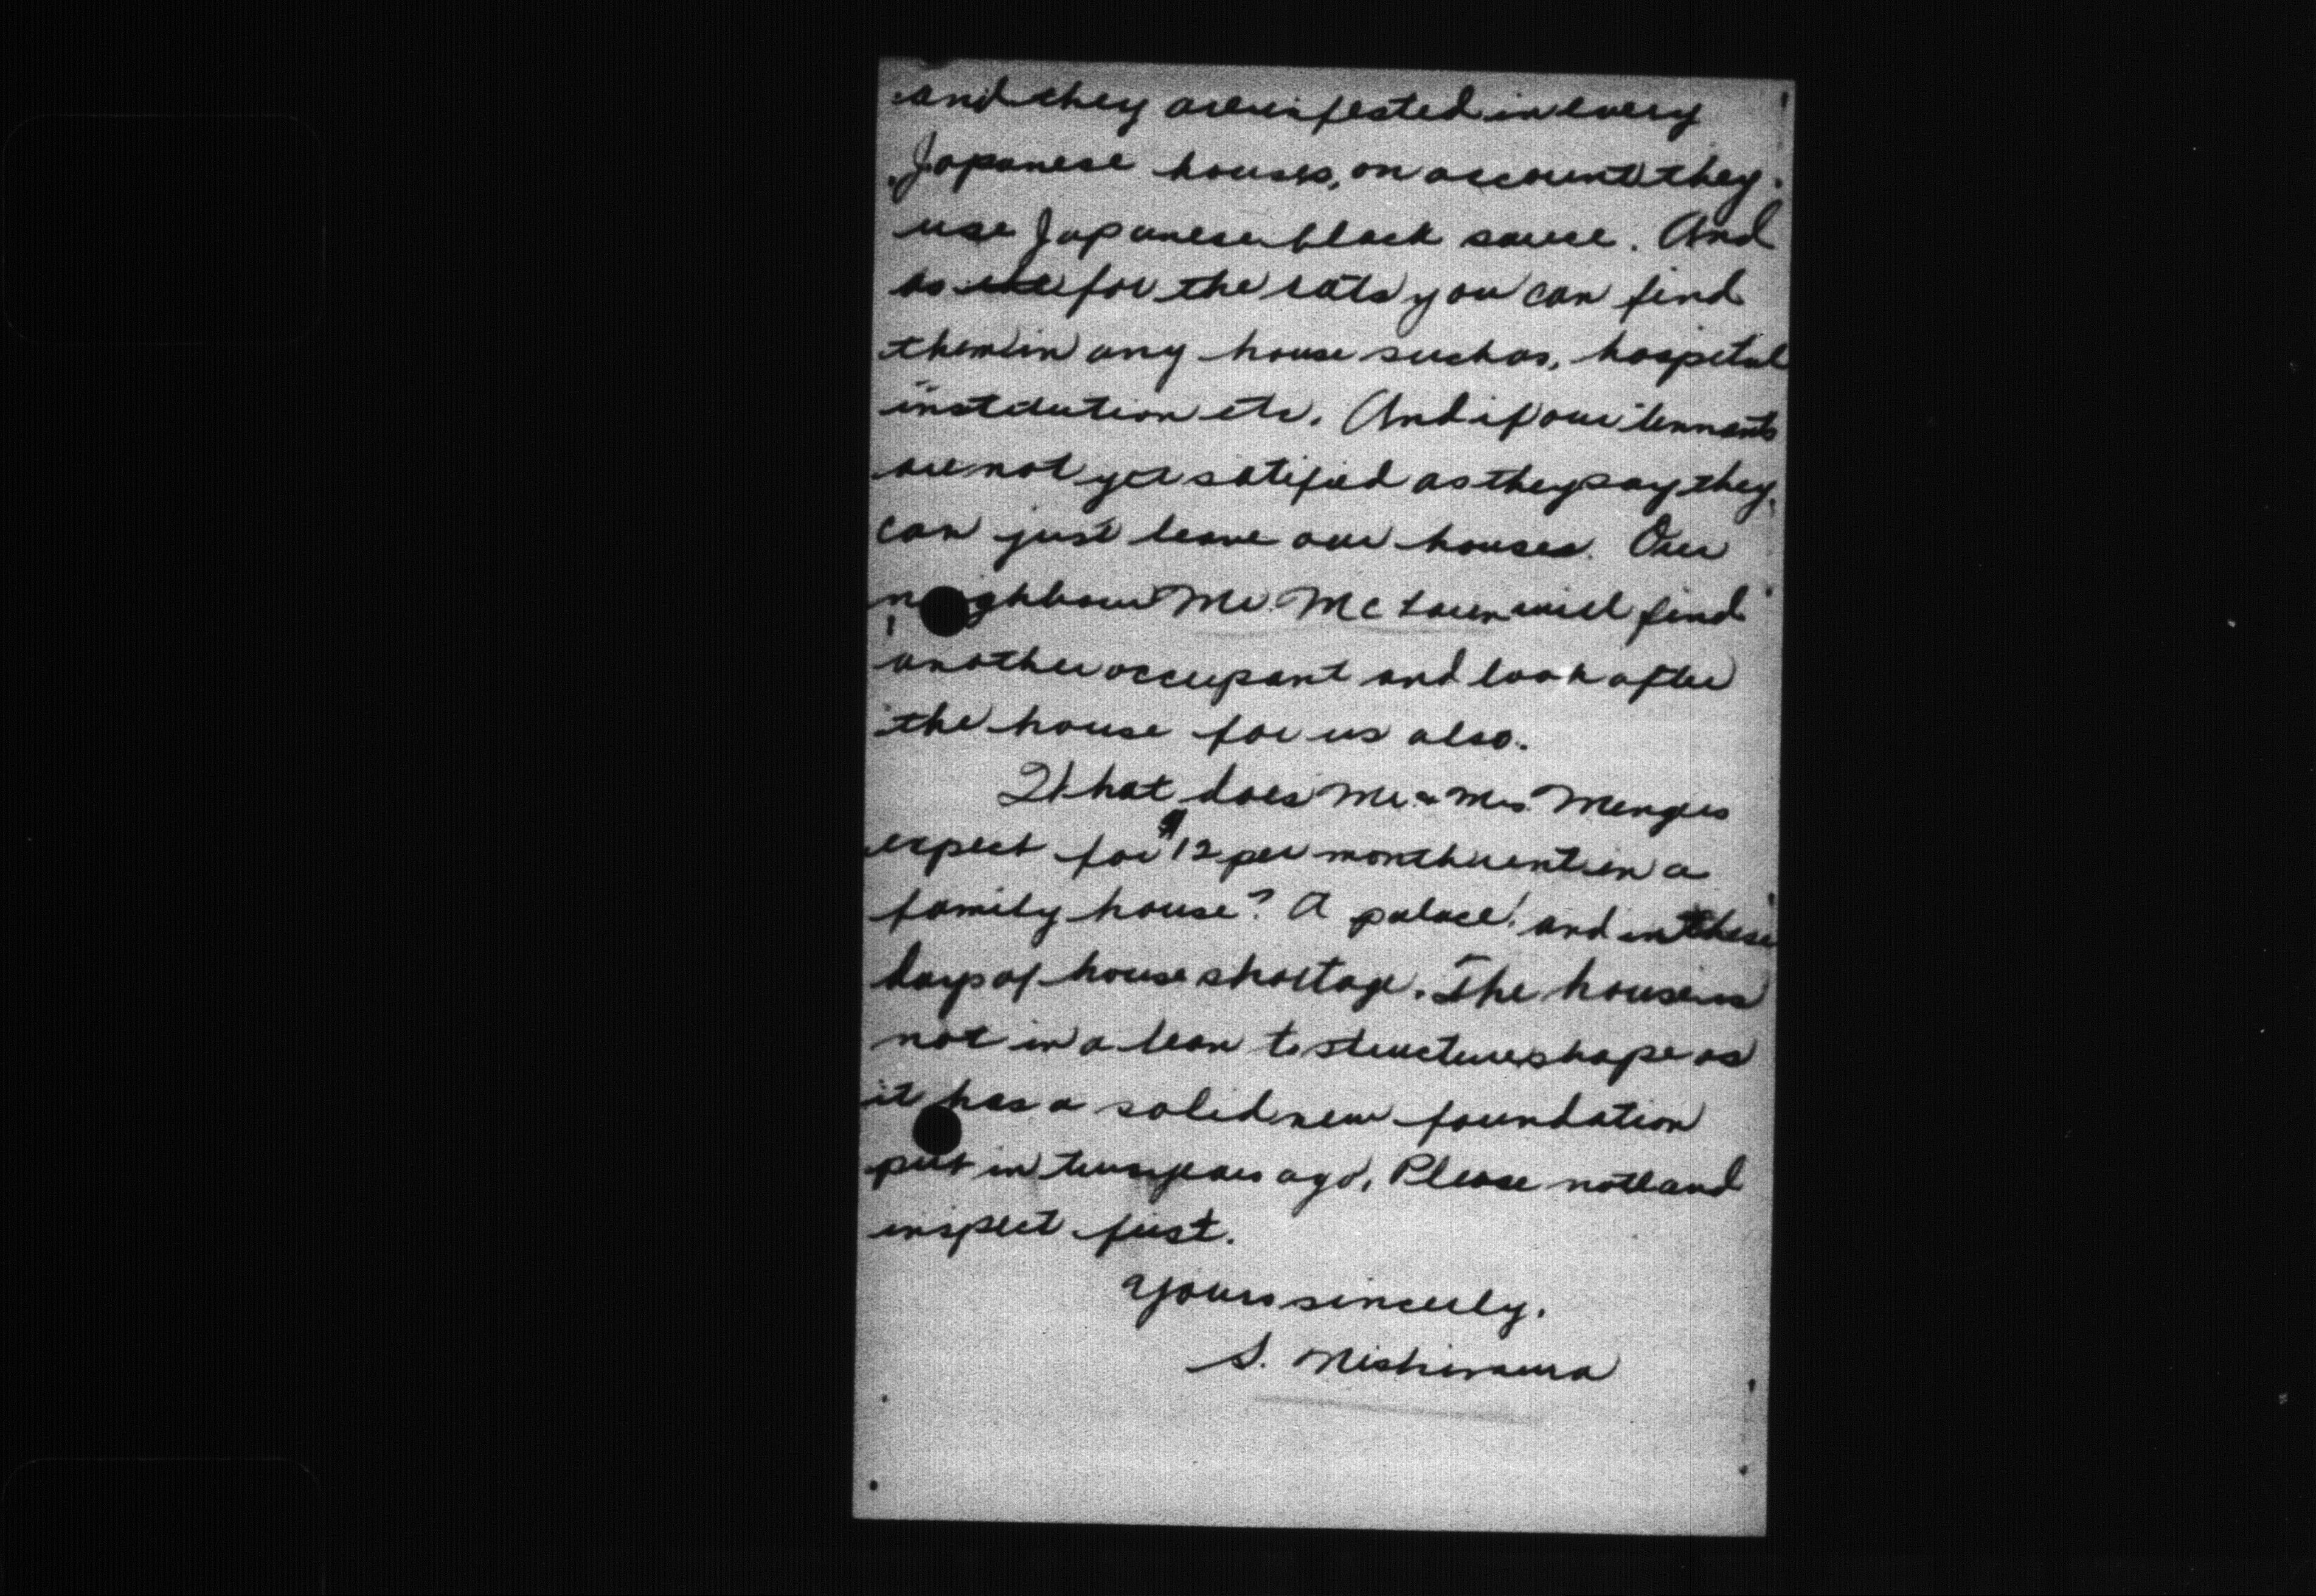 and they are infested in every
Japanese houses, on account they
use Japanese black sauce. And
as for the rats you can find
them in any house such as, hospital
institution etc. And if our tennants
are not yet satified as they say they
can just leave our houses. Our
neighbour Mr. McLaren will find
another occupant and look after
the house for us also.
What does Mr & Mrs. Menzies
expect for $12 per month rent in a
family house? A palace! and in these
days of house shortage. The house is
not in a lean to structure shape as
it has a solid new foundation
put in two years ago. Please note and
inspect first.
Yours sincerly.
S. Nishimura